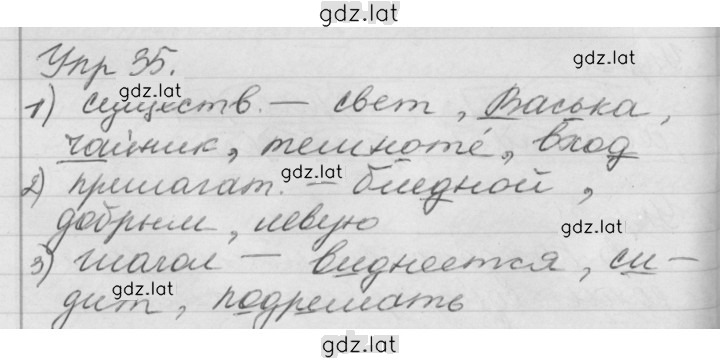 gdz.lat
Упр 35.
gdz.lat
gdz.lat
1) существ. – свет, Васька,
чайник, темноте, вход
gdz.lat
2) прилагат. – бледной,
добрым, левую
gdz.lat
3) глагол – виднеется, си-
gdz.lat
дит, подремать
gdz.lat